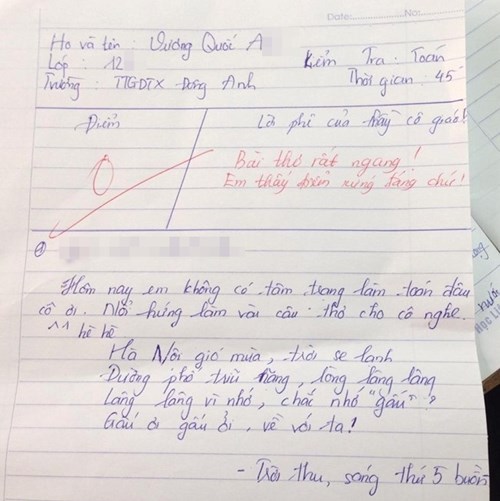 Date: No:
Họ và tên : Vương Quốc A
Lớp : 12
Kiểm Tra : Toán
Trường : TTGDTX Đông Anh
Thời gian : 45'
Điểm
Lời phê của thầy cô giáo!
0
Bài thơ rất ngang!
Em thấy điểm xứng đáng chứ!
①
Hôm nay em không có tâm trạng làm toán đâu
cô ơi. Nổi hứng làm vài câu thơ cho cô nghe.
^^ hề hề
Hà Nội gió mùa, trời se lạnh
Đường phố trũi nặng, lòng lâng lâng
Lâng lâng vì nhớ, chắc nhớ "gấu" ?
Gấu ơi gấu ởi, về với ta!
- Trời thu, sáng thứ 5 buồn